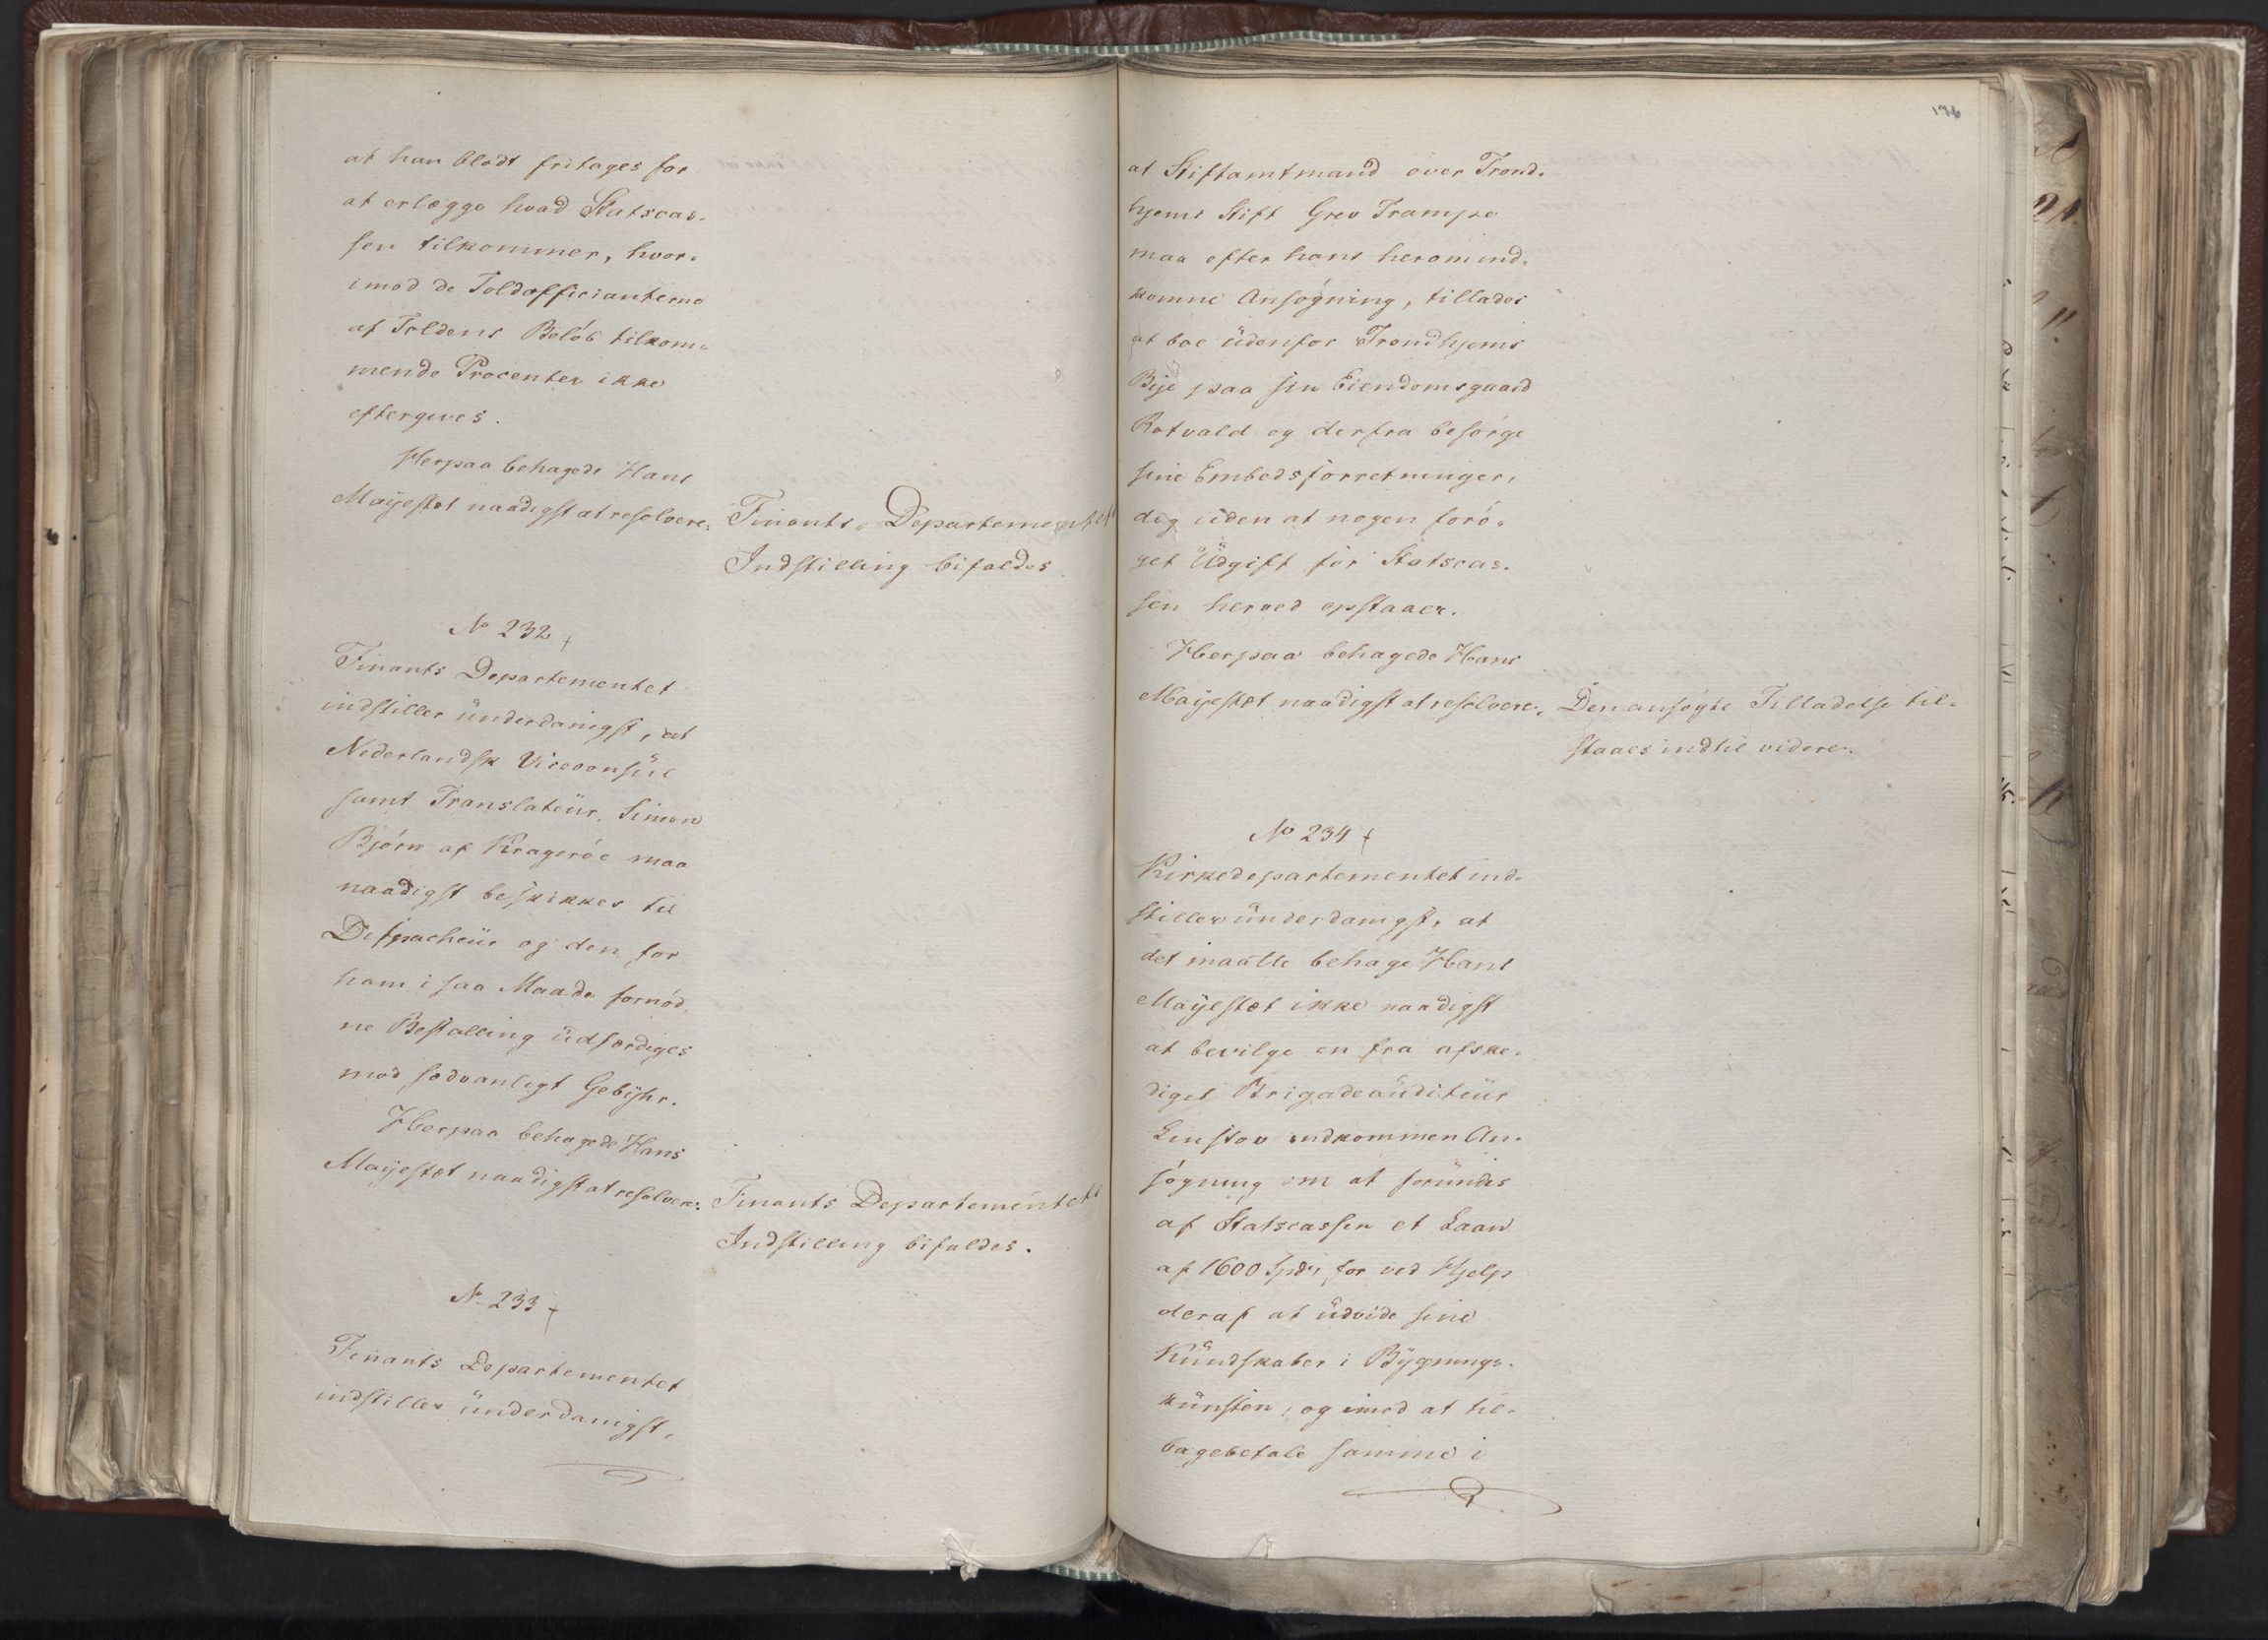 at han blodt fritages for
at erlægge hvad Statscas-
sen tilkommer, hvor-
imod de Toldofficianterne
af Toldens Beløb tilkom-
mende Procenter ikke
eftergives.
Herpaa behagede Hans
Mayestæt naadigst at resolvere:
Finants-Departementets
Indstilling bifaldes.
No 232
Finants Departementet
indstiller ünderdanigst, at
Nederlandsk Viceconsül
samt Translateür Simon
Bjørn af Kragerøe maa
naadigst beskikkes til
Dispacheür og den for
ham i saa Maade fornød-
ne Bestalling üdfærdiges
mod sædvanligt Gebÿhr.
Herpaa behagede Hans
Mayestæt naadigst at resolvere:
Finants Departementets
Indstilling bifaldes.
No 233
Finants Departementet
indstiller ünderdanigst,
176
at Stiftamtmand over Trond-
hjems Stift Grev Trampe
maa efter hans herom ind-
komne Ansøgning, tillades
at boe üdenfor Trondhjems
Bye paa sin Eiendomsgaard
Rotvald og derfra besørge
sine Embedsforretninger,
dog üden at nogen forø-
get Üdgift for Statscas-
sen herved opstaaer.
Herpaa behagede Hans
Mayestæt naadigst at resolvere:
Den ansøgte Tilladelse til-
staaes indtil videre.
No 234
Kirkedepartementet ind-
stiller ünderdanigst, at
det maatte behage Hans
Mayestæt ikke naadigst
at bevilge en fra afske-
diget Brigadeaüditeür
Linstov indkommen An-
søgning om at foründes
af Statscassen et Laan
af 1600 Spdr, for ved Hjelp
deraf at üdvide sine
Kündskaber i Bÿgnings-
künsten, og imod at til-
bagebetale samme i